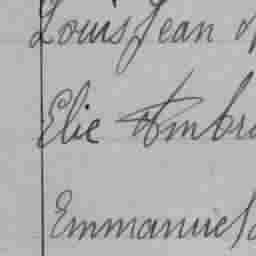 Louis Jean
Elie Ambro
Emmanuel